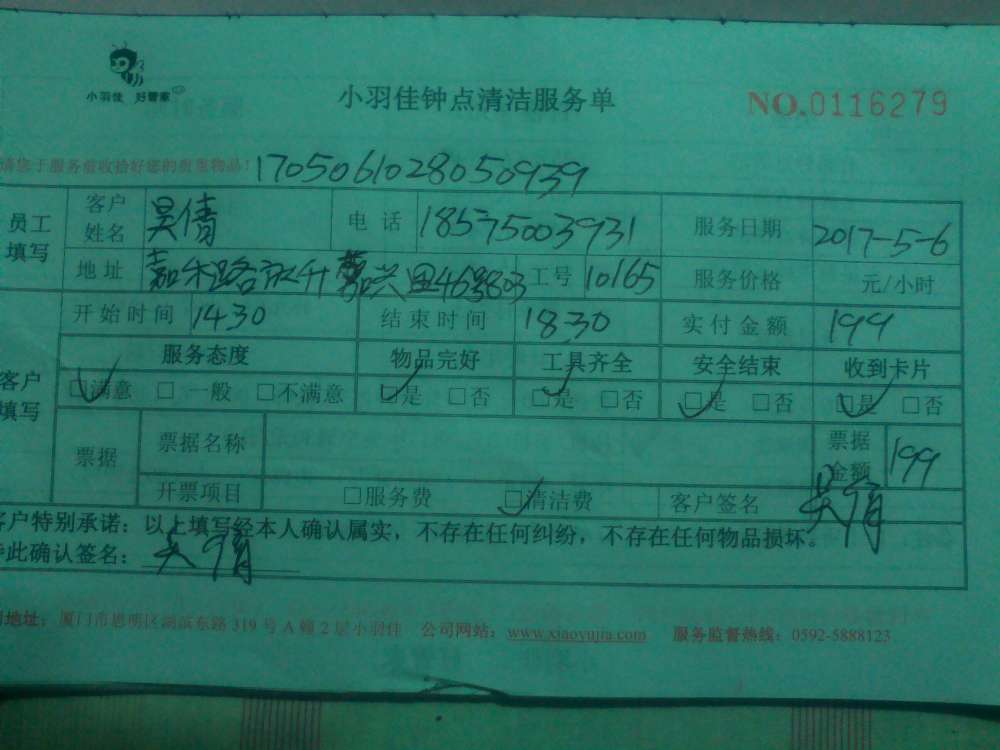 小羽佳 好管家
小羽佳钟点清洁服务单
NO.0116279
请您于服务前收拾好您的贵重物品！ 1705061028050939
员工填写 客户姓名 吴倩 电话 18575003931 服务日期 2017-5-6
地址 嘉禾路 兴里46号803 工号 10165 服务价格 元/小时
开始时间 1430 结束时间 1830 实付金额 199
客户填写 服务态度 物品完好 工具齐全 安全结束 收到卡片
☑满意 □一般 □不满意 ☑是 □否 ☑是 □否 ☑是 □否 ☑是 □否
票据 票据名称 票据金额 199
开票项目 □服务费 ☑清洁费 客户签名 吴倩
客户特别承诺：以上填写经本人确认属实，不存在任何纠纷，不存在任何物品损坏。
此确认签名：吴倩
地址：厦门市思明区湖滨东路319号A幢2层小羽佳 公司网站：www.xiaoyujia.com 服务监督热线：0592-5888123